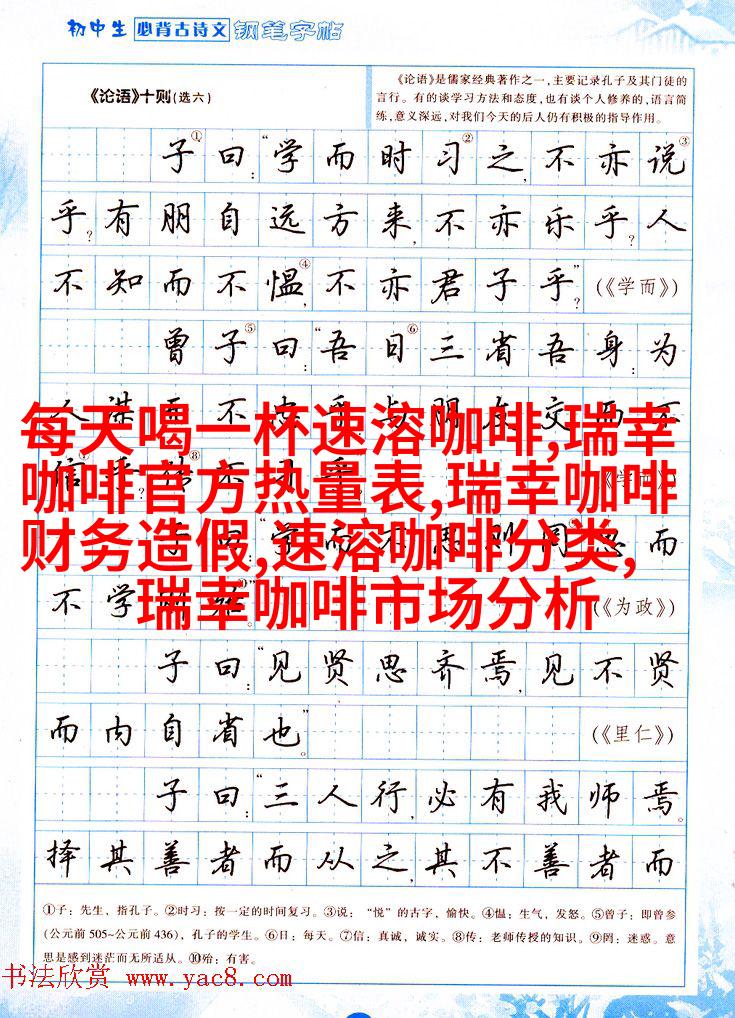 初中生 必背古诗文 钢笔字帖
《论语》十则(选六)
《论语》是儒家经典著作之一,主要记录孔子及其门徒的
言行。有的谈学习方法和态度,也有谈个人修养的,语言简
练,意义深远,对我们今天的后人仍有积极的指导作用。
子①曰:“学而时习②之,不亦说③
乎?有朋自远方来,不亦乐乎?人
不知而不愠④,不亦君子乎?”(《学而》)
曾子⑤曰:“吾日⑥三省吾身:为
不 交而不
每天喝一杯速溶咖啡,瑞幸
咖啡官方热量表,瑞幸咖啡
财务造假,速溶咖啡分类,
瑞幸咖啡市场分析
而
不学 (《为政》)
子曰:“见贤思齐焉,见不贤
而内自省也。”(《里仁》)
子曰:“三人行,必有我师焉。
择其善者而从之,其不善者而
①子:先生,指孔子。②时习:按一定的时间复习。③说:“悦”的古字,愉快。④愠:生气,发怒。⑤曾子:即曾参
(公元前505~公元前436),孔子的学生。⑥日:每天。⑦信:真诚,诚实。⑧传:老师传授的知识。⑨罔:迷惑。意
思是感到迷茫而无所适从。⑩殆:有害。
书法欣赏 www.yac8.com